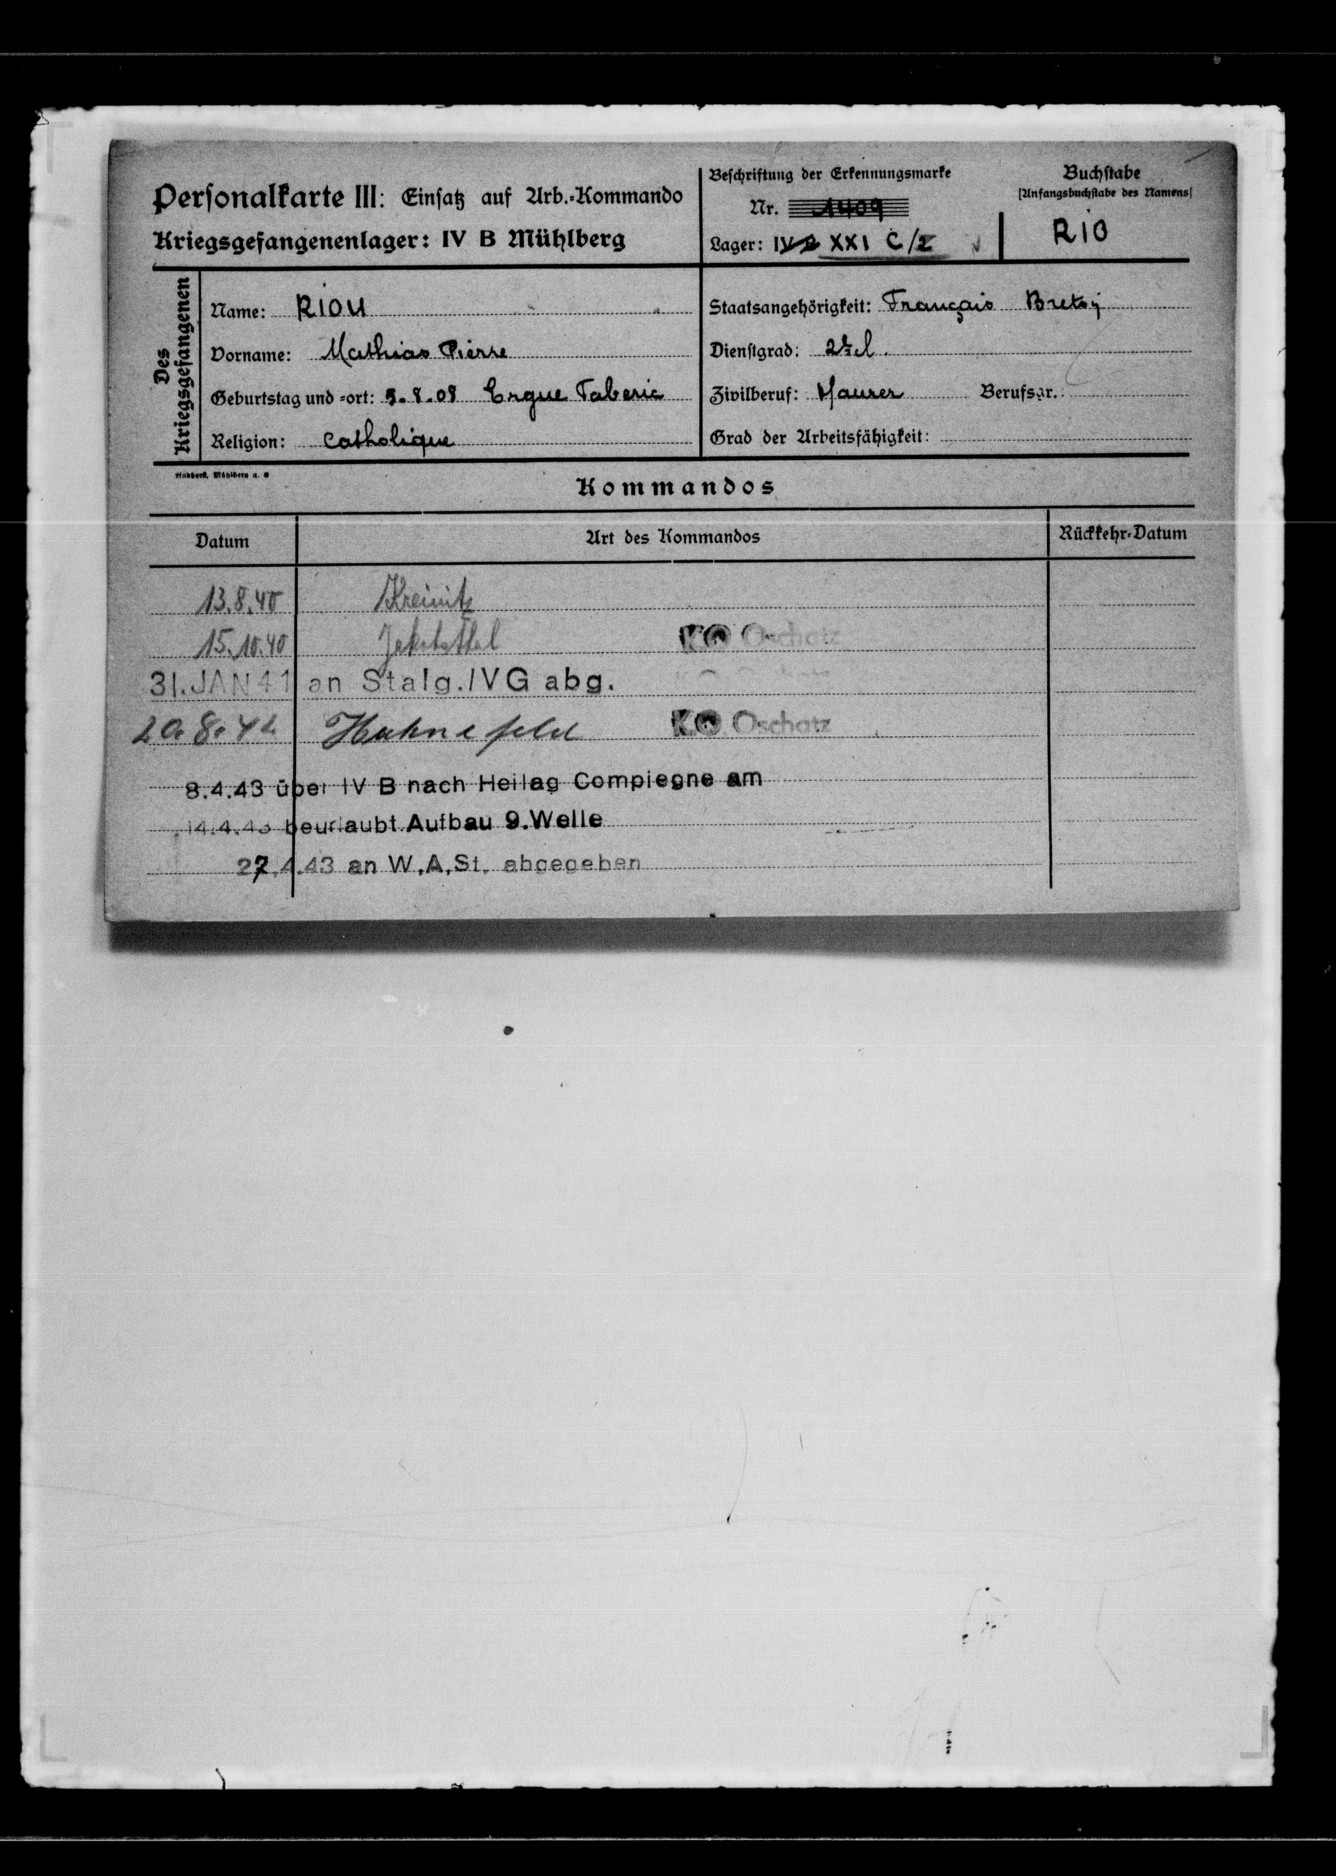 Personalkarte III: Einsatz auf Arb.-Kommando
Kriegsgefangenenlager: IV B Mühlberg
Beschriftung der Erkennungsmarke
Nr. 1409
Lager: IV B XXI C/Z
Buchstabe
[Anfangsbuchstabe des Namens]
RIO
Des Kriegsgefangenen
Name: RIOU
Vorname: Mathias Pierre
Geburtstag und -ort: 5.8.08 Ergue Gaberic
Religion: catholique
Staatsangehörigkeit: Français Breton
Dienstgrad: 2e cl.
Zivilberuf: Maurer Berufsgr.:
Grad der Arbeitsfähigkeit:
Mühlberg a. E
Kommandos
Datum Art des Kommandos Rückkehr-Datum
13.8.40 Kreinitz
15.10.40 KO Oschatz
31. JAN 41 an Stalg. IVG abg.
20.8.42 Hahnefeld KO Oschatz
8.4.43 über IV B nach Heilag Compiegne am
14.4.43 beurlaubt Aufbau 9.Welle
27.4.43 an W.A.St. abgegeben